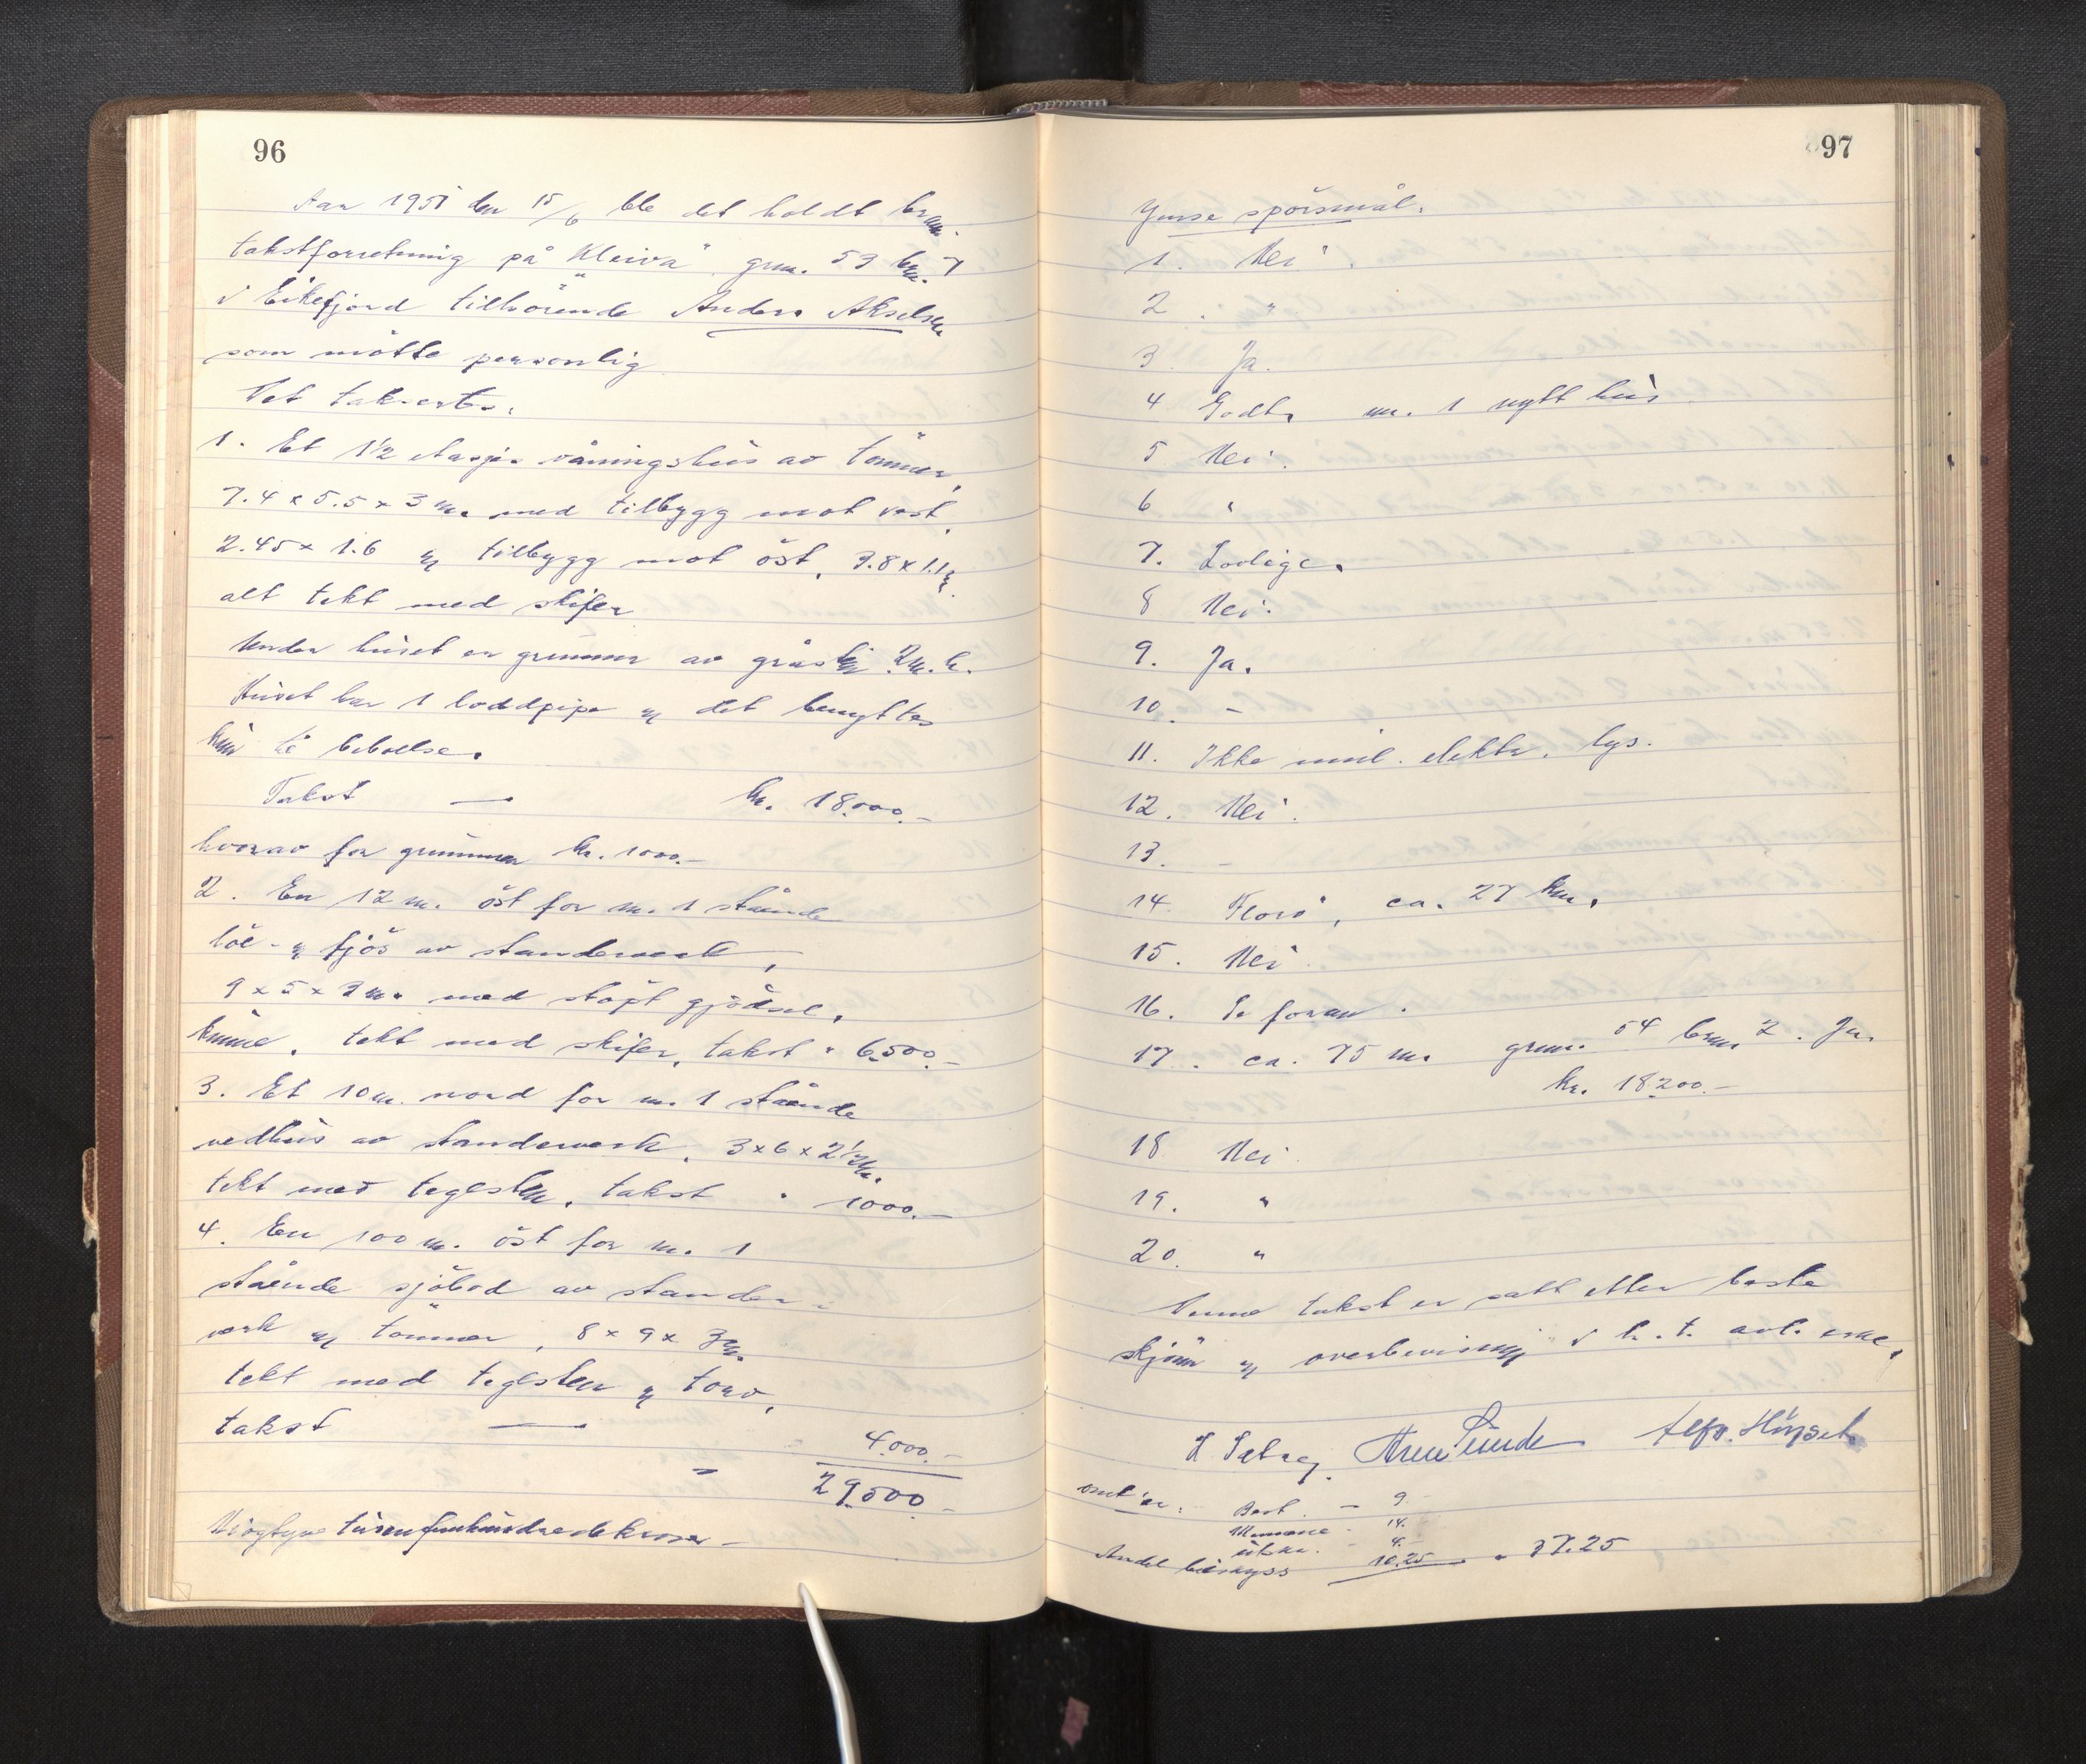 96
Aar 1951 den 15/6 ble det holdt brann-
takstforretning på "Kleiva" grnr. 53 brnr. 7
i Eikefjord tilhörende Anders Akselsen
som mötte personlig
Det taksertes:
1. Et 1½ etasjes våningshus av tömmer,
7.4 x 5.5 x 3 m. med tilbygg mot vest,
2.45 x 1.6 og tilbygg mot öst, 3.8 x 1.1
alt tekt med skifer
Under huset er grunmur av gråstein 2 m. h.
Huset har 1 loddpipe og det benyttes
kun til beboelse.
Takst — kr. 18.000.-
hvorav for grunmur kr. 1000.-
2. En 12 m. öst for nr. 1 stående
löe- og fjös av standerverk,
9 x 5 x 3 m. med stöpt gjödsel-
kumme, tekt med skifer, takst " 6.500.-
3. Et 10 m. nord for nr. 1 stående
vedhus av standerverk, 3 x 6 x 2½ m.
tekt med teglsten, takst " 1000.-
4. En 100 m. öst for nr. 1
stående sjöbod av stander-
verk og tömmer, 8 x 9 x 3 m.
tekt med teglsten og torv,
takst — 4.000.-
29.500.-
Niogtyve tusen femhundrede kroner -
97
Ymse spörsmål.
1. Nei.
2. "
3. Ja.
4 Godt, nr. 1 nytt hus
5 Nei.
6 "
7. Lovlige.
8 Nei.
9. Ja.
10. -
11. Ikke innl. elektr. lys.
12. Nei.
13. -
14. Florö, ca. 27 km.
15. Nei.
16. Se foran.
17. ca. 75 m. grnr. 54 brnr. 2. Ja.
kr. 18200.-
18 Nei
19. "
20. "
Denne takst er satt etter beste
skjönn og overbevisning i h. t. avl. eed.
Arne Sunde
Best. - 9
14.
4.
Andel bilskyss 10.25 " 37.25